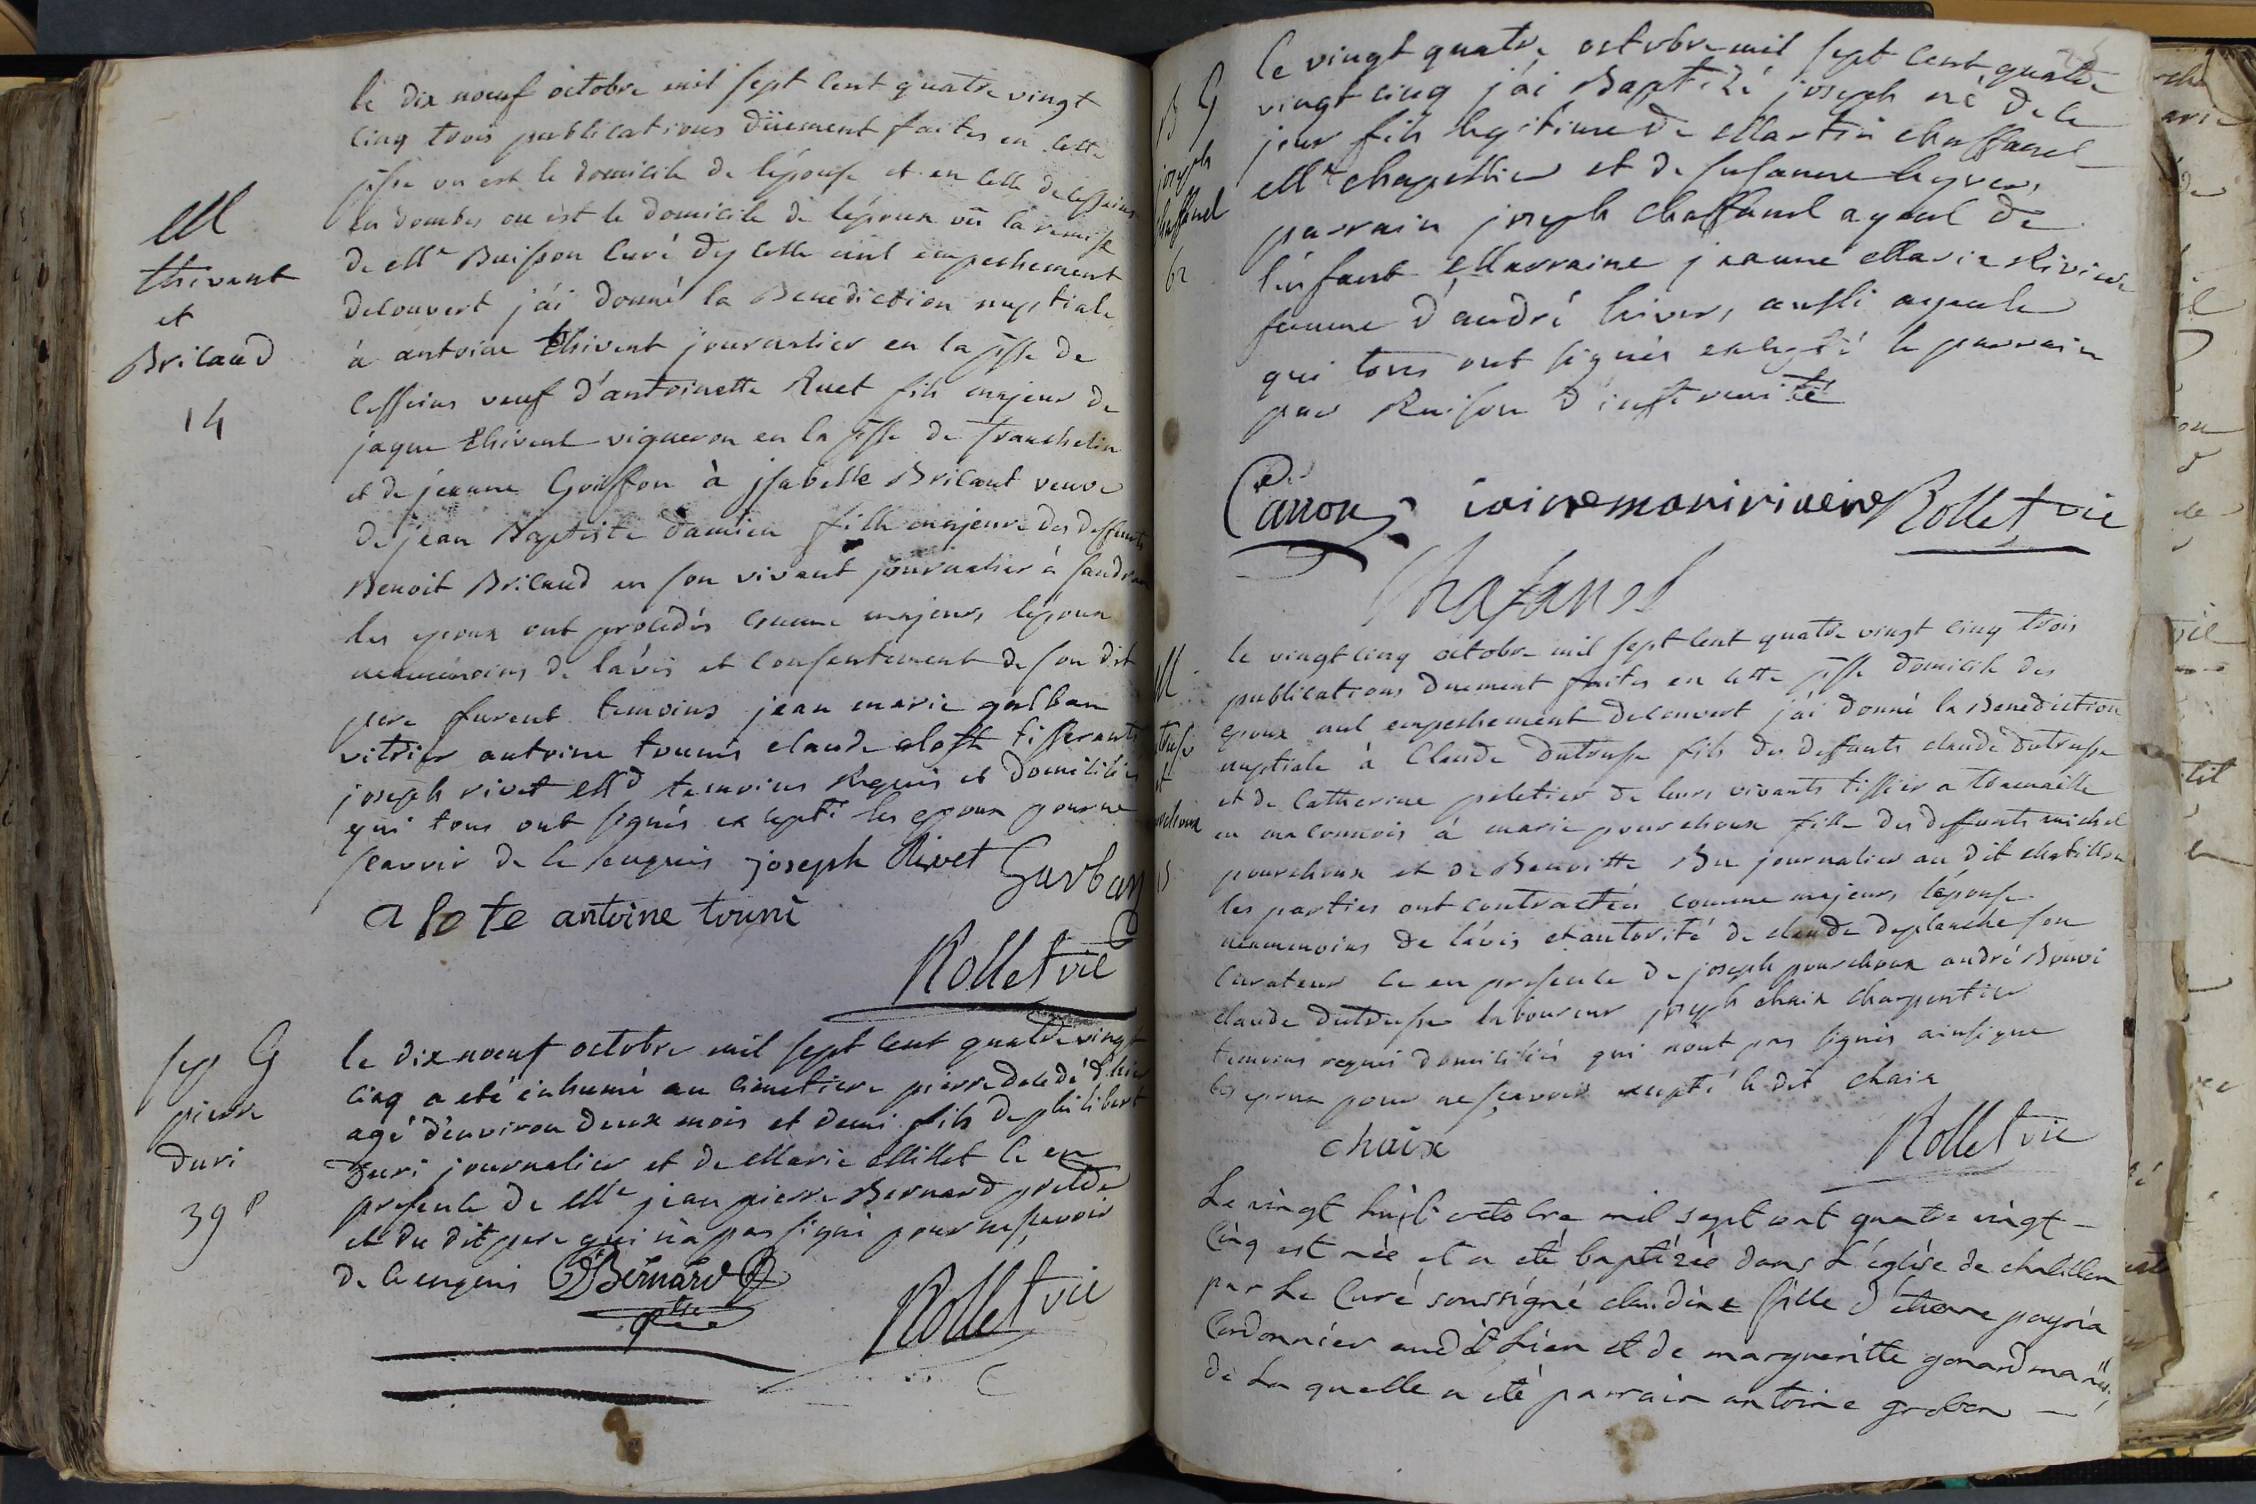 M
thivent
et
Brilaud
14
le dix noeuf octobre mil sept cent quatre vingt
cinq trois publications düement faites en cette
psse ou est le domicile de lépouse et en celle de cesseins
en dombes ou èst le domicile de lépoux vü la remise
de Mr Buisson curé dycelle nul empechement
decouvert j'ai donné la Benediction nuptiale
à antoine thivent journalier en la psse de
cesseins veuf d'antoinette Ruet fils majeur de
jaque thivent vigneron en la psse de franchelin
et de jeanne Goiffon à jsabelle Brilaud veuve
de jean Baptiste damien fille majeure des deffunts
Benoit Brilaud en son vivant journalier à sandran
les epoux ont procédés comme majeurs lépoux
neanmoins de lávis et consentement de son dit
pere furent temoins jean marie garban
vitrier antoine tounis claude alofte tisserants
joseph rivet Md temoins Requis et domiciliés
qui tous ont signés excepté les epoux pour ne
scavoir de ce enquis joseph Rivet Garban
a lo te antoine touni
Rollet vic
sep G
pierre
duri
39 p
le dix noeuf octobre mil sept cent quatre vingt
cinq a eté inhumé au cimetiere pierre décédé d'hier
agé d'environ deux mois et demi fils de philibert
Duri journalier et de Marie Millet ce en
presence de Mr jean pierre Bernard prètre
et du dit pere qui n'a pas signé pour ne scavoir
de ce enquis Bernard
ptre
Rollet vic
B G
joseph
chaffanel
62
le vingt quatre octobre mil sept cent quatre
vingt cinq j'ai Baptizé joseph né de ce
jour fils legitime de Martin chaffanel
Md chapellier et de susanne
parrain joseph chaffanel ayeul de
l'enfant Marraine jeanne Marie Riviere
femme d'andré aussi ayeule
qui tous ont signés excepté le parrain
par Raison d'infirmité
Carron janne mari riviere Rollet vic
Chafanel
M
et
15
le vingt cinq octobre mil sept cent quatre vingt cinq trois
publications duement faites en cette psse domicile des
epoux nul empechement decouvert j'ai donné la Benediction
nuptiale à Claude dutruse fils des deffunts claude dutruse
et de Catherine peletier de leurs vivants tissier a
en maconnois à marie pourchoux fille des deffunts michel
pourchoux et de Benoitte Bu journalier au dit chatillon
les parties ont contractés comme majeurs l'épouse
neanmoins de l'avis et autorité de claude deplanche son
curateur ce en presence de joseph pourchoux andré Bouvi
claude dutruse laboureur joseph chaix charpentier
temoins requis domiciliés qui n'ont pas signés ainsi que
les epoux pour ne scavoir excepté le dit chaix
chaix
Rollet vic
Le vingt huit octobre mil sept cent quatre vingt
cinq est née et a eté baptizée dans L'églize de chatillon
par Le Curé soussigné claudine fille d'etienne payria
Cordonnier audit Lieu et de margueritte gonard mariés,
de La quelle a eté parrain antoine greben